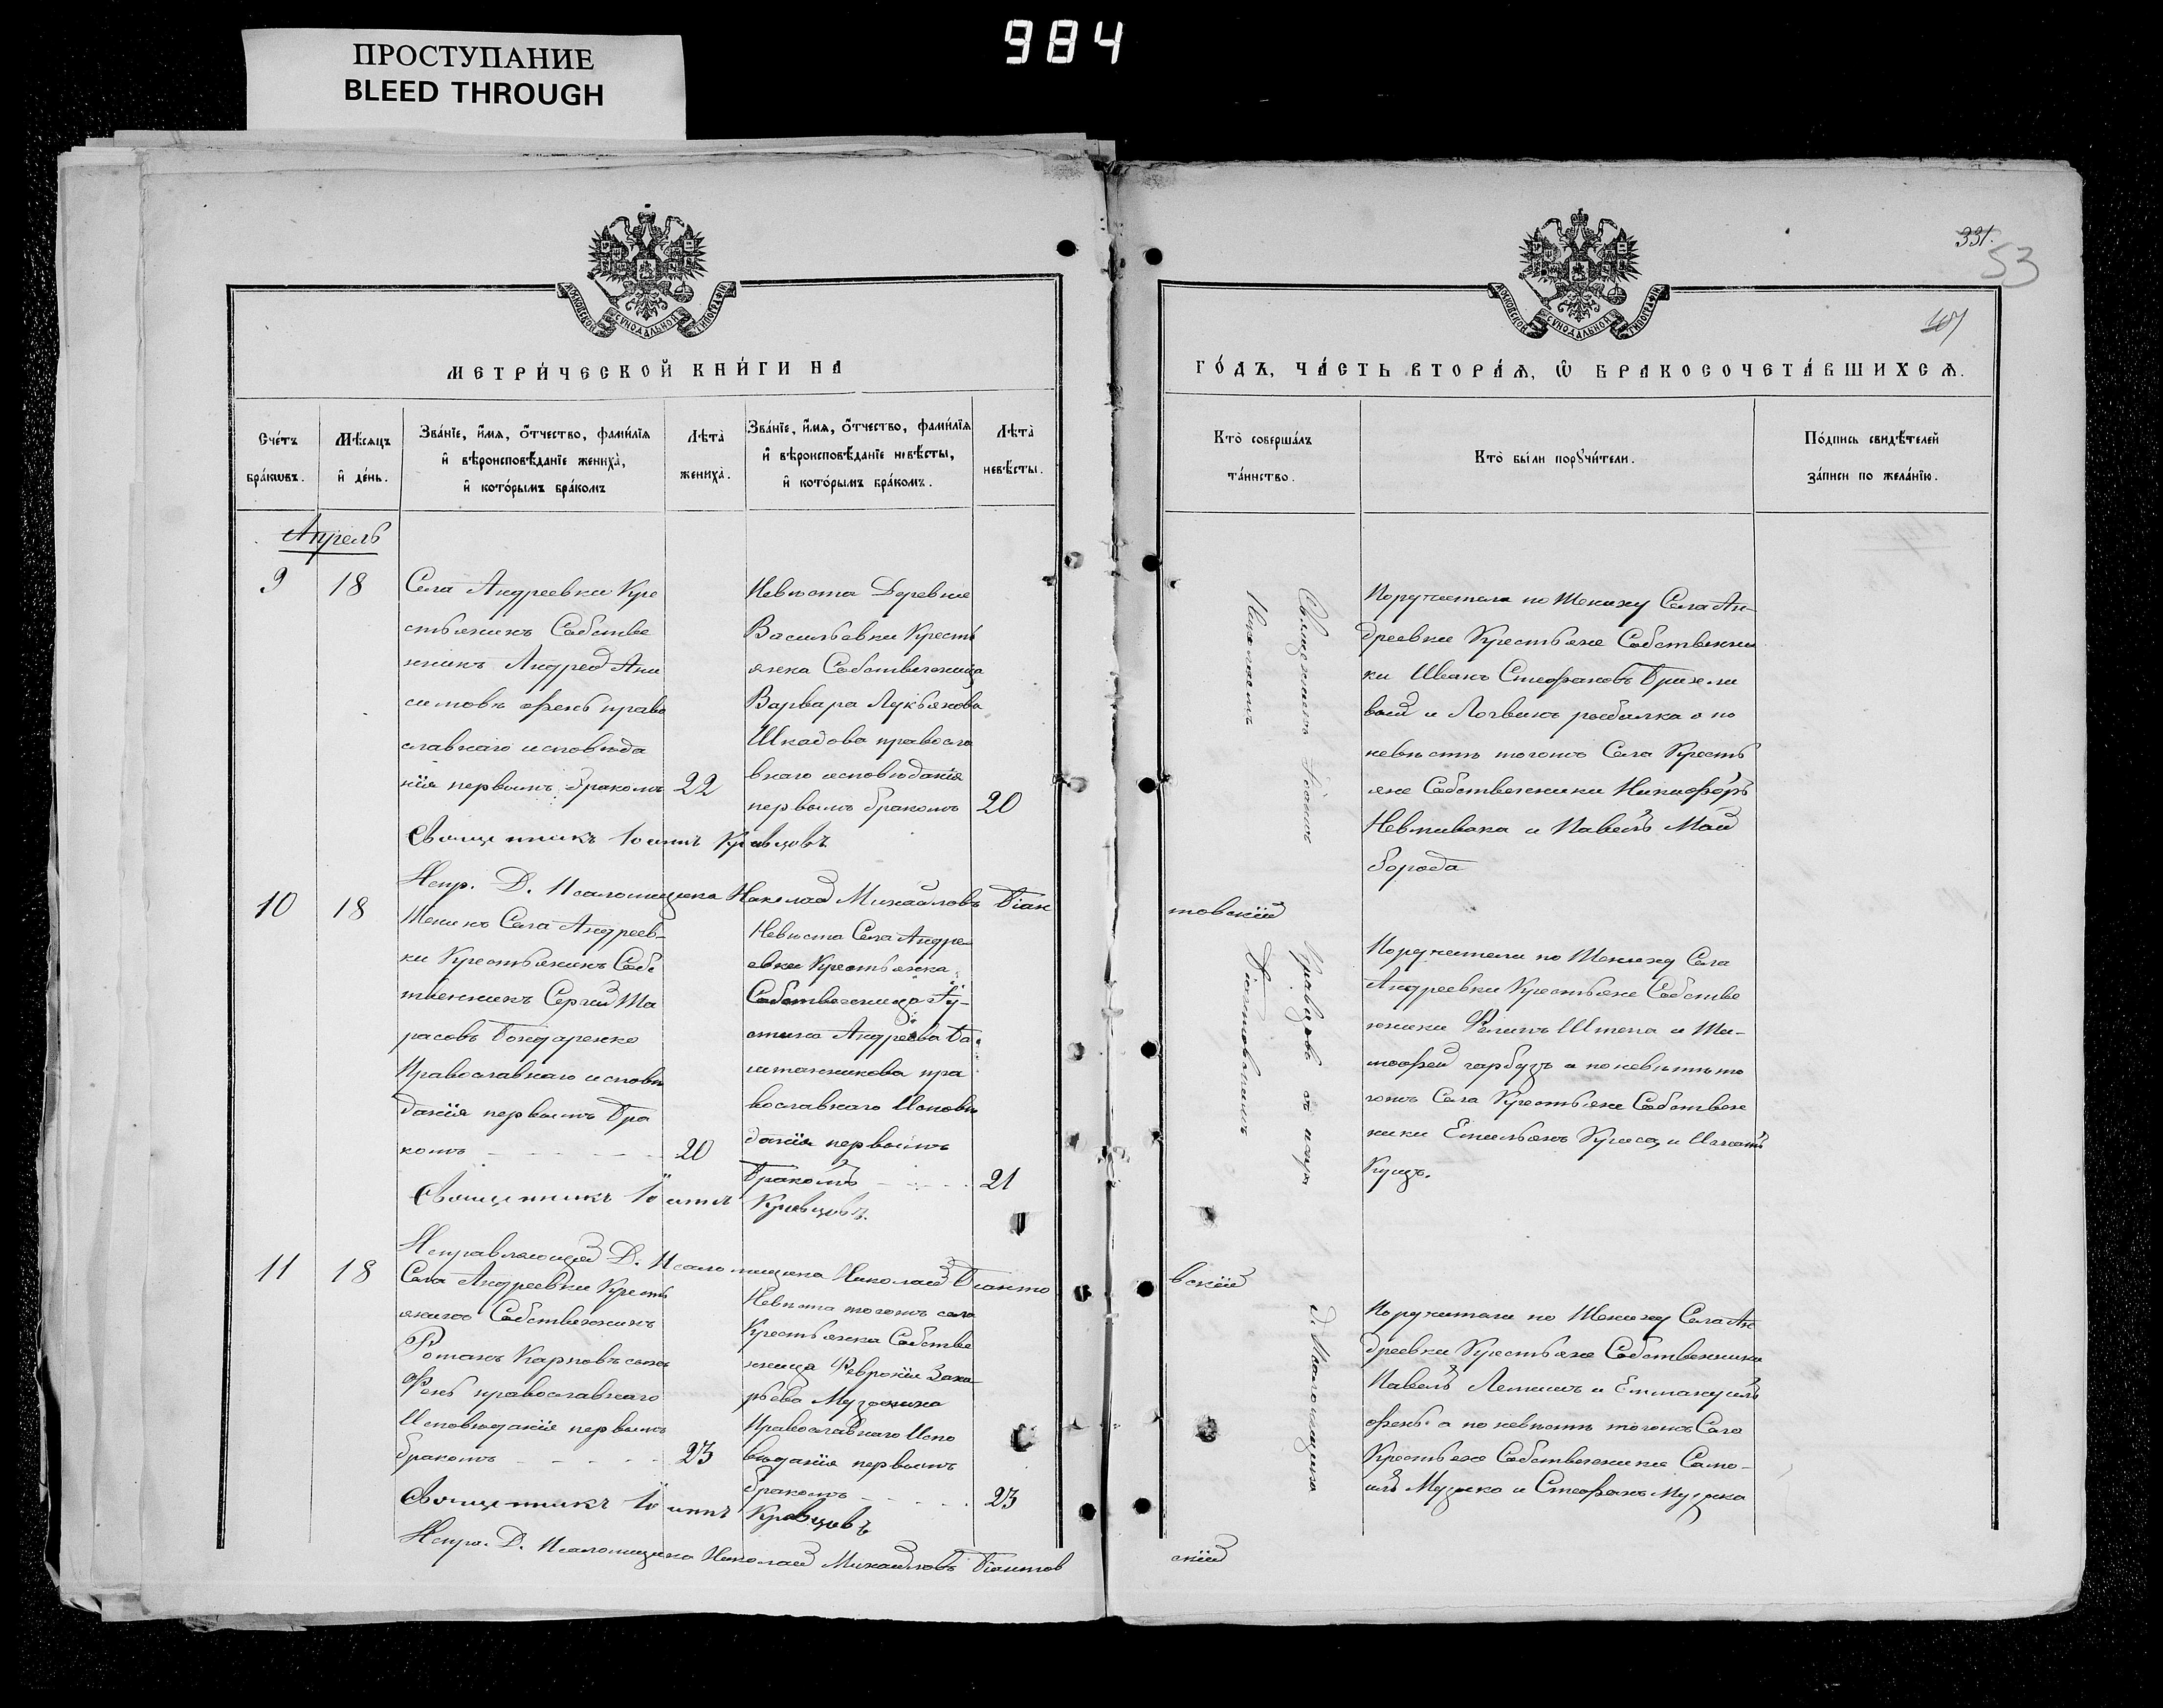 984
ПРОСТУПАНИЕ
BLEED THROUGH
МОСКОВСКОЙ СѴНОДАЛЬНОЙ ТИПОГРАФІИ
МЕТРИ́ЧЕСКОЙ КНИ́ГИ НА
Сче́тъ бра́кωвъ.
Мѣ́сяцъ и҆ де́нь.
Зва́нїе, и҆́мя, ѻ҆́тчество, фами́лїя
и҆ вѣроисповѣ́данїе жениха̀,
и҆ кото́рымъ бра́комъ
Лѣта̀ жениха̀.
Зва́нїе, и҆́мя, ѻ҆́тчество, фами́лїя
и҆ вѣроисповѣ́данїе невѣ́сты,
и҆ кото́рымъ бра́комъ.
Лѣта̀ невѣ́сты.
Апрель
9
18
Села Андреевки Кре
стьянинъ Собстве
нникъ Андрей Ани
симовъ Фень право
славнаго исповѣда
нія первымъ бракомъ
22
Невѣста Деревни
Васильевки Кресть
янка Собственница
Варвара Лукьянова
Шкадова правосла
внаго исповѣданія
первымъ бракомъ
20
Священникъ Іоаннъ Кравцовъ
Испр. Д. Псаломщика Николай Михайловъ Біан
10
18
Женихъ Села Андреев-
ки Крестьянинъ Собс
твенникъ Сергій Та
расовъ Бондаренко
Православнаго исповѣ
данія первымъ Бра
комъ
20
Невѣста Села Андре
евки Крестьянка
Собственница
Андреева Ба
штанникова пра
вославнаго Исповѣ
данія первымъ
Бракомъ
21
Священникъ Іоаннъ Кравцовъ.
Исправляющій Д. Псаломщика Николай Біанто
11
18
Села Андреевки Кресть
янинъ Собственникъ
Романъ Карповъ сынъ
Фень православнаго
Исповѣданія первымъ
бракомъ
23
Невѣста тогожъ села
Крестьянка Собстве
нница Февронія Заха
рьева Музыкина
Православнаго Испо
вѣданія первымъ
бракомъ
23
Священникъ Іоаннъ Кравцовъ
Испр. Д. Псаломщика Николай Михайловъ Біантов
МОСКОВСКОЙ СѴНОДАЛЬНОЙ ТИПОГРАФІИ
331.
53
107
ГО́ДЪ, ЧА́СТЬ ВТОРА́Я, Ѡ҆ БРАКОСОЧЕТА́ВШИХСЯ.
Кто̀ соверша́лъ
та́инство.
Кто̀ бы́ли порꙋчи́тели.
По́дпись свидѣ́телей
за́писи по жела́нїю.
Священникъ Іоаннъ Кравцовъ съ испр
Д. Псаломщика
Николаемъ Біантовскимъ
Поручители по Жениху Села Ан-
дреевки Крестьяне Собственни
ки Иванъ Стефановъ
вый и Логвинъ рыбалка а по
невѣстѣ тогожъ Села Кресть
яне Собственники Никифоръ
и Павелъ Май
борода
товскій
Поручители по Жениху Села
Андреевки Крестьяне Собстве
нники Филипъ Штепа и Ти-
мофей гарбузъ а по невѣстѣ то
гожъ Села Крестьяне Собствен
ники Емильянъ и Игнатъ
Куцъ.
вскій
Поручители по Жениху Села Ан
дреевки Крестьяне Собственники
Павелъ и Еммануилъ
Фень а по невѣстѣ тогожъ Села
Крестьяне Собственники Само-
илъ Музыка и Стефанъ Музыка
скій